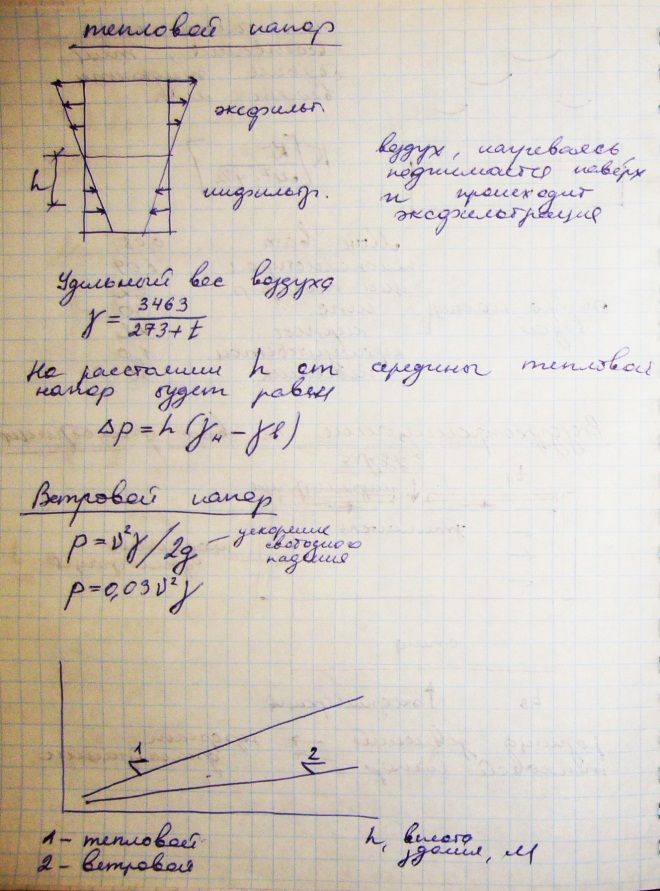 тепловой напор
эксфильт.
h
инфильтр.
воздух, нагреваясь
поднимается наверх
и происходит
эксфильтрация
Удельный вес воздуха
γ = 3463 / 273+t
На расстоянии h от середины тепловой
напор будет равен
Δp = h (γн − γв)
Ветровой напор
p = v²γ/2g – ускорение
свободного
падения
p = 0,03v²γ
1
2
1 – тепловой
2 – ветровой
h, высота
здания, м